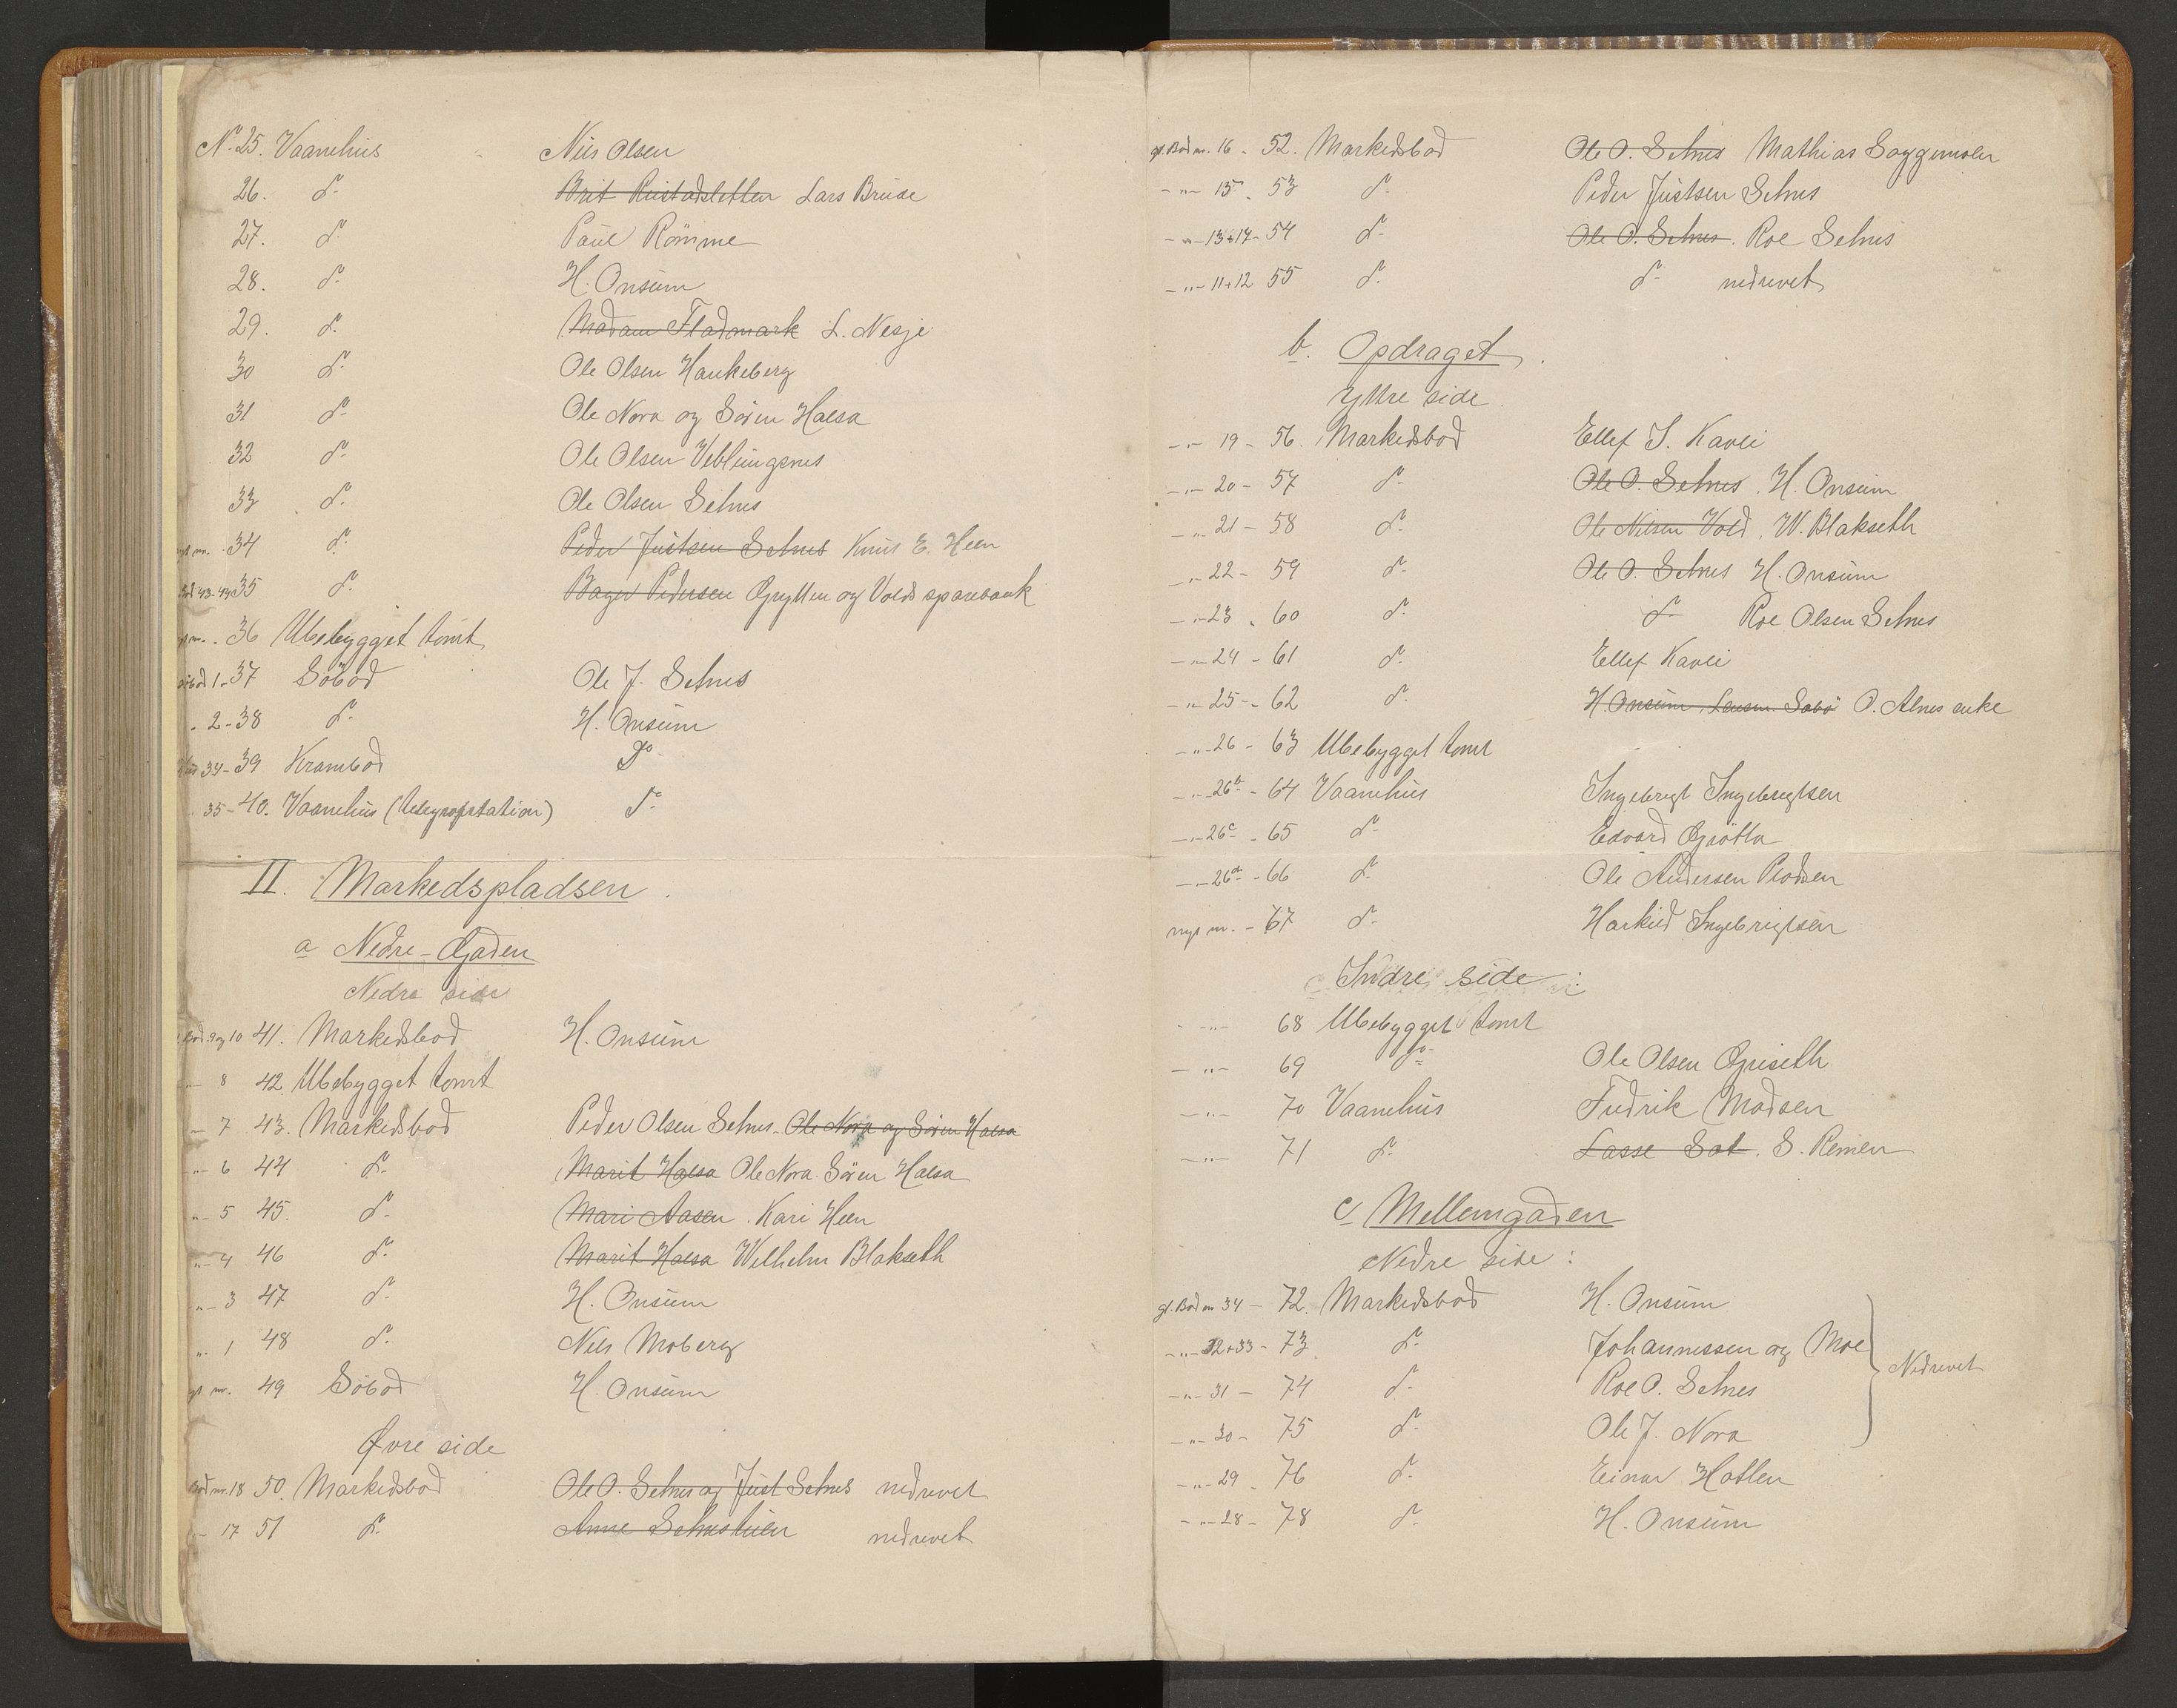 No 25. Vaanehus Nils Olsen
26. do Brit Rustadsletten Lars Bruse
27. do Paul Römme
28. do H. Onsum
29. do Madam Fladmark L. Nesje
30 do Ole Olsen Haukeberg
31 do Ole Nora og Sören Halsa
32 do Ole Olsen Veblungsnes
33 do Ole Olsen Setnes
34 do Peder Justsen Setnes Knut E. Heen
43-44 35 do Bager Pedersen Grytten og Volds sparebank
36 Ubebygget tomt
1-37 Söbod Ole J. Setnes
2-38 do H. Onsum
34-39 Krambod Do
35-40. Vaanehus (Telegrafstation) do
II. Markedspladsen.
a Nedre-Gaden
Nedre side
Bod 9 og 10 41. Markedsbod H. Onsum
" 8 42. Ubebygget tomt
- 7 43. Markedsbod Peder Olsen Setnes. Ole Nora og Sören Halsa
"- 6 44 do Marit Halsa Ole Nora Sören Halsa
"- 5 45. do Mari Aasen. Kari Heen
"- 4 46 do Marit Halsa Wilhelm Blakseth
"- 3 47 do H. Onsum
". 1 48 do Nils Moberg
49 Söbod H. Onsum
Øvre side
Bod nr. 18 50. Markedsbod Ole O. Setnes og Just Setnes nedrevet
- 17 51 do Anne Setnes nedrevet
gl. Bod nr. 16 - 52. Markedsbod Ole O. Setnes Mathias Soggemoen
-"- 15. 53 do Peder Justsen Setnes
-"- 13+14- 54 do Ole O. Setnes. Roe Setnes
-"- 11+12 55 do do nedrevet
b. Opdraget.
Yttre side.
-"- 19 - 56. Markedsbod Ellef S. Kavli
-"- 20 - 57 do Ole O. Setnes. H. Onsum
-"- 21 - 58 do Ole Nilsen Vold. W. Blakseth
-"- 22 - 59 do Ole O. Setnes H. Onsum
-"- 23 . 60 do do Roe Olsen Setnes
-"- 24 - 61 do Ellef Kavli
-"- 25 - 62 do H. Onsum, Lensm. Sabö O. Alnes enke
-"- 26 - 63 Ubebygget tomt
-"- 26b - 64 Vaanehus Ingebrigt Ingebrigtsen
-"- 26c - 65 do Edvard Grötta
-"- 26a - 66 do Ole Andersen Pladsen
nyt nr. - 67 do Ingebrigtsen
c. Indre side:
-"- 68 Ubebygget tomt
-"- 69 do Ole Olsen Griseth
-"- 70 Vaanehus Fredrik Madsen
-"- 71 do Lasse Sat. S. Remen
c/ Mellemgaden
Nedre side:
gl. Bod nr 34 - 72. Markedsbod H. Onsum
-"- 32+33 - 73 do Johannessen og Moe
-"- 31 - 74 do Roe O. Setnes Nedrevet
-"- 30 - 75 do Ole J. Nora
-"- 29 . 76 do Einar Hatlen
-"- 28 - 78 do H. Onsum